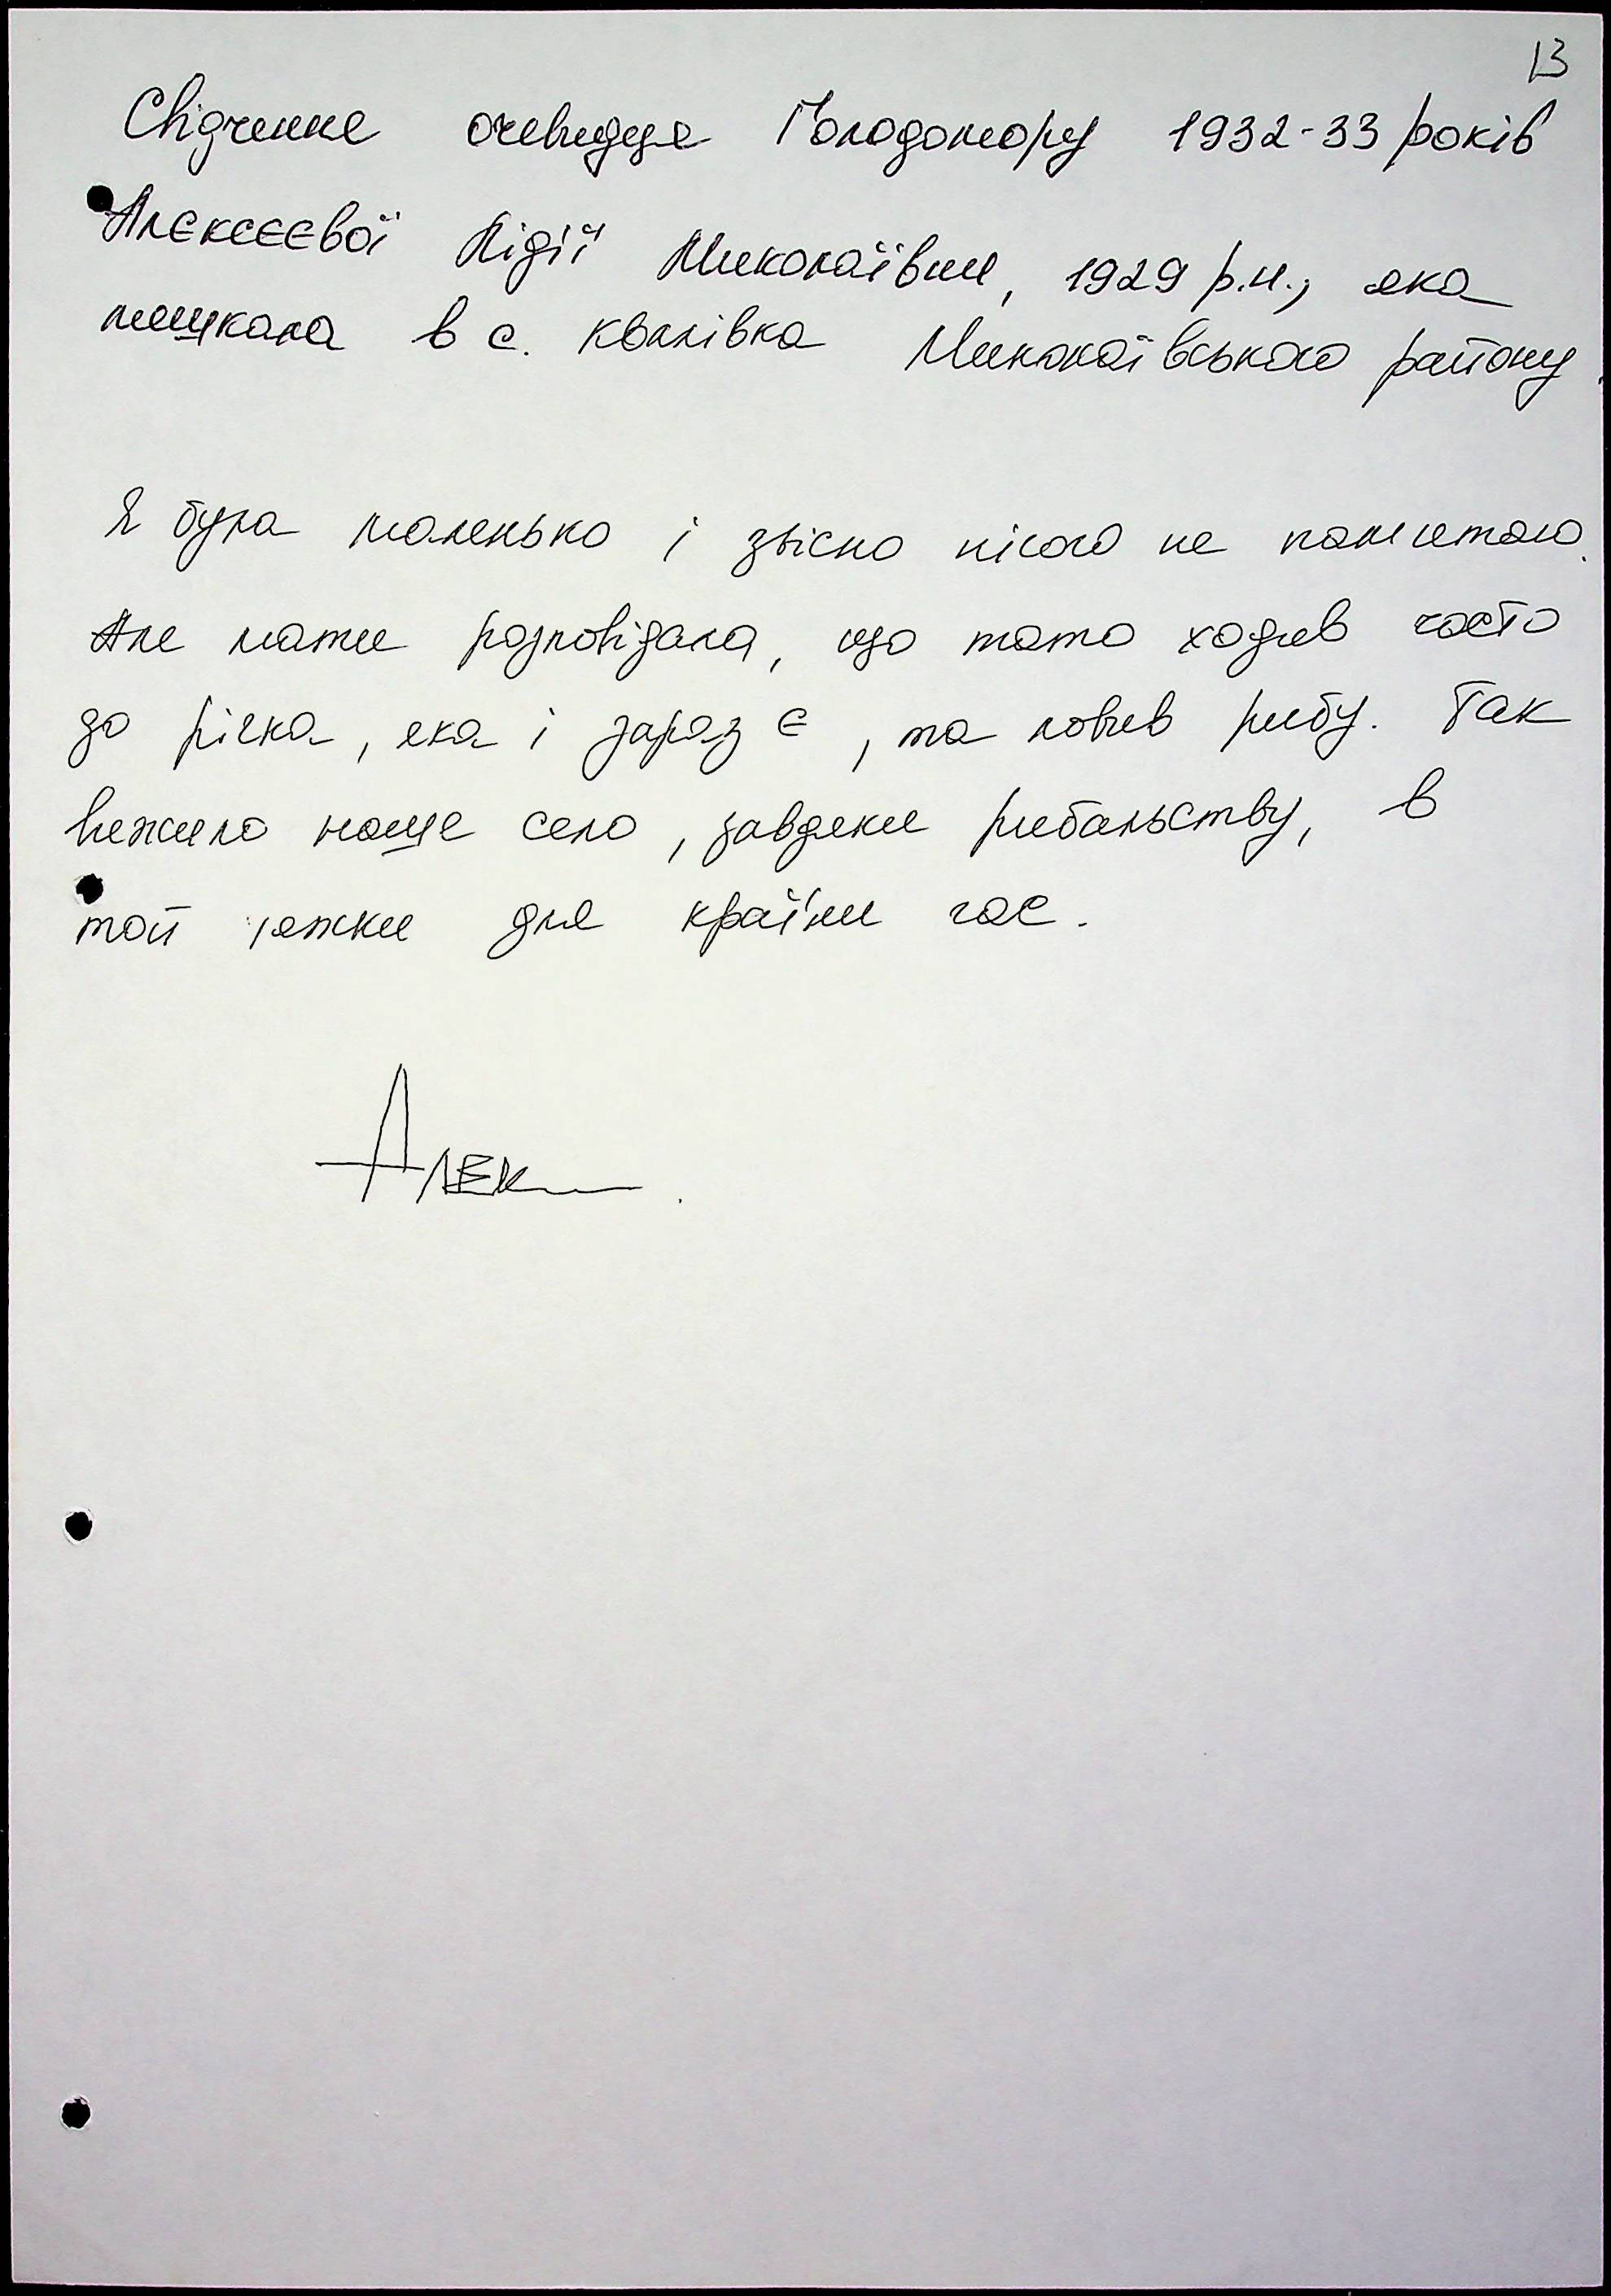 13
Свідчення очевидця Голодомору 1932-33 років
Алєксєєвої Лідії Миколаївни, 1929 р.н., яка
мешкала в с. Ковалівка Миколаївського району.
Я була маленько і звісно нічого не памʼятаю.
Але мати розповідала, що тато ходив часто
до річка, яка і зараз є, та ловив рибу. Так
вижило наше село, завдяки рибальству, в
той тяжки для країни час.
Алек